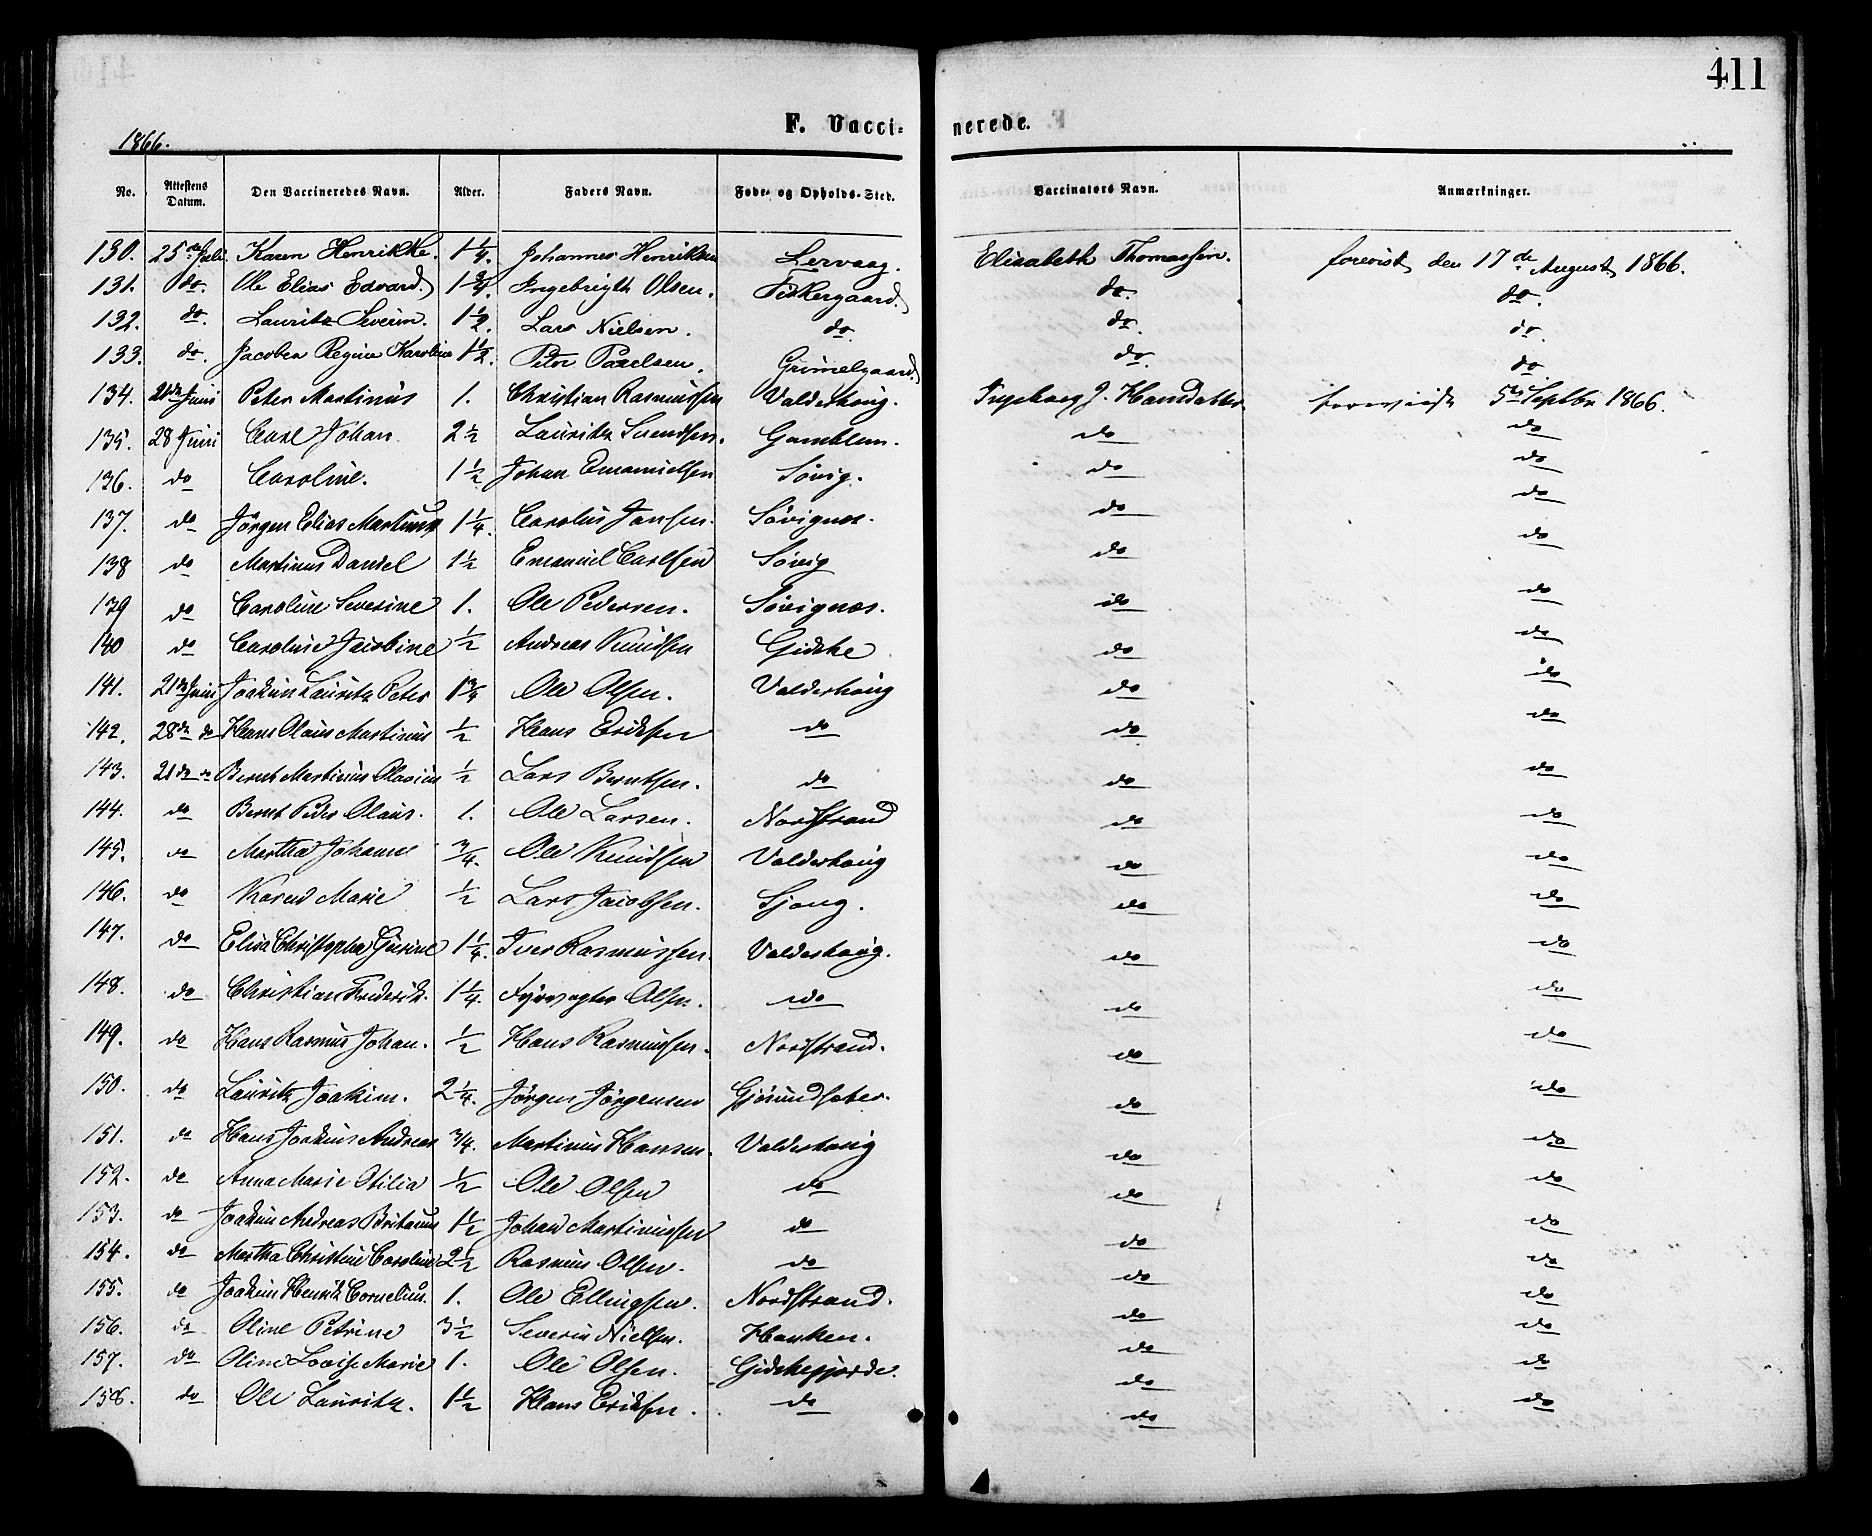 411
F. Vacci-nerede.
1866.
No. Attestens Datum. Den Vaccineredes Navn. Alder. Faders Navn. Føde- og Opholds-Sted. Vaccinators Navn. Anmærkninger.
130. 25de Juli Karen Henrikke. 1 1/4. Johannes Henriksen Lervaag. Elisabeth Thomassen. forevist den 17de August 1866.
131. do. Ole Elias Edvard. 1 3/4. Ingebrigt Olsen. Fiskergaard. do. do.
132. do. Lauritz Severin. 1 1/2. Lars Nielsen. do do. do.
133. do. Jacobea Regine Karoline 1 1/2. Peter Paxelsen. Grimelgaard. do. do
134. 21de Juni Peter Martinus 1. Christian Rasmussen Valderhoug. Ingeborg J. Hansdatter forevist 5te Septbr 1866.
135. 28 Juni Carl Johan 2 1/2 Lauritz Svendsen. Gamblem. do do
136. do Caroline. 1 1/2 Johan Emanuelsen Søvig. do do
137. do Jørgen Elias Martinus 1 1/4. Carolus Jansen. Søvignes. do do
138 do Martinus Daniel 1 1/2 Emanuel Carlsen Søvig do do
139 do Caroline Severine 1. Ole Pedersen. Søvignes. do do
140 do Caroline Jacobine 1/2 Andreas Knudsen Gidske do do
141. 21de Juni Joakim Lauritz Peter 1 3/4 Ole Olsen. Valderhoug do do
142. 28de do Hans Olaus Martinus 1/2 Hans Eriksen do do do
143. 21de do Bernt Martinus Olavius 1/2 Lars Berntsen. do do do
144. do Bernt Peder Olaus. 1. Ole Larsen. Nordstrand do do
145. do Martha Johanne 3/4. Ole Knudsen Valderhoug do do
146. do Karen Marie 1/2 Lars Jacobsen. Sjong. do do
147. do Elisa Christopha Gurine 1 1/4. Iver Rasmussen. Valderhoug. do do
148. do Christian Frederik. 1 1/4. Fyrvogter Olsen. do do do
149. do Hans Rasmus Johan. 1/2 Hans Rasmussen. Nordstrand. do do
150. do Lauritz Joakim. 2 1/4. Jørgen Jørgensen Gjøsundsæter. do do
151. do Hans Joakim Andreas 3/4. Martinus Hansen. Valderhoug do do
152. do Anna Marie Otilia 1/2 Ole Olsen do do do
153. do Joakim Andreas Britanus 1 1/2 Johan Martinussen do do do
154. do Martha Christine Caroline 2 1/2 Rasmus Olsen. do do do
155. do Joakim Henrik Cornelius. 1. Ole Ellingsen. Nordstrand. do do
156. do Oline Petrine 3 1/2 Severin Nielsen. Hanken. do do
157. do Oline Lovise Marie 1. Ole Olsen. Gidskegjerde. do do
158. do Ole Lauritz. 1 1/2 Hans Eriksen. do do do